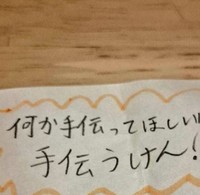 何か手伝ってほしい
手伝うけん!